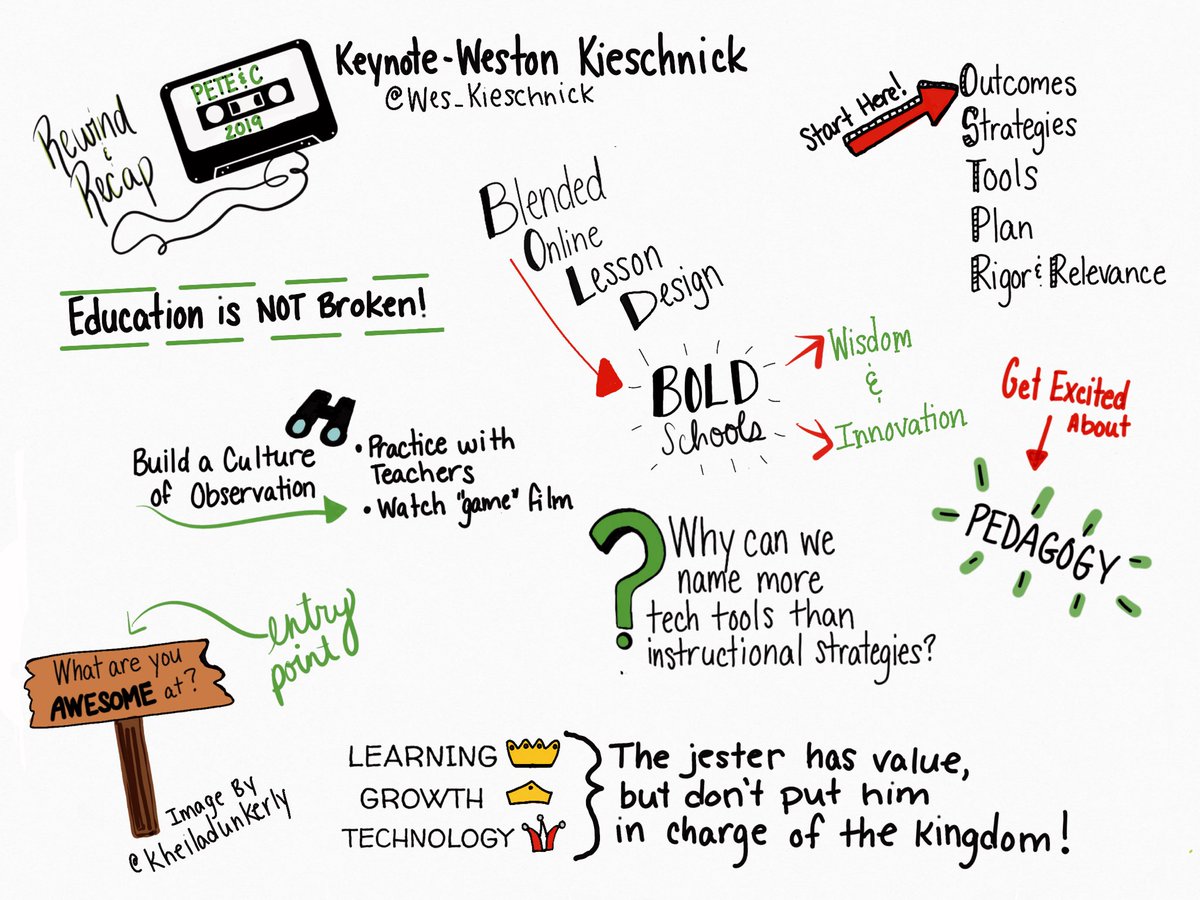 Rewind
&
Recap
PETE & C
2019
Keynote-Weston Kieschnick
@Wes_Kieschnick
Start Here!
Outcomes
Strategies
Tools
Plan
Rigor & Relevance
Blended
Online
Lesson
Design
BOLD
Schools
Wisdom
&
Innovation
Education is NOT Broken!
Build a Culture
of Observation
• Practice with
Teachers
• Watch "game" film
Get Excited
About
PEDAGOGY
?
Why can we
name more
tech tools than
instructional strategies?
entry
point
What are you
AWESOME at?
Image By
@kheiladunkerly
LEARNING
GROWTH
TECHNOLOGY
The jester has value,
but don't put him
in charge of the kingdom!